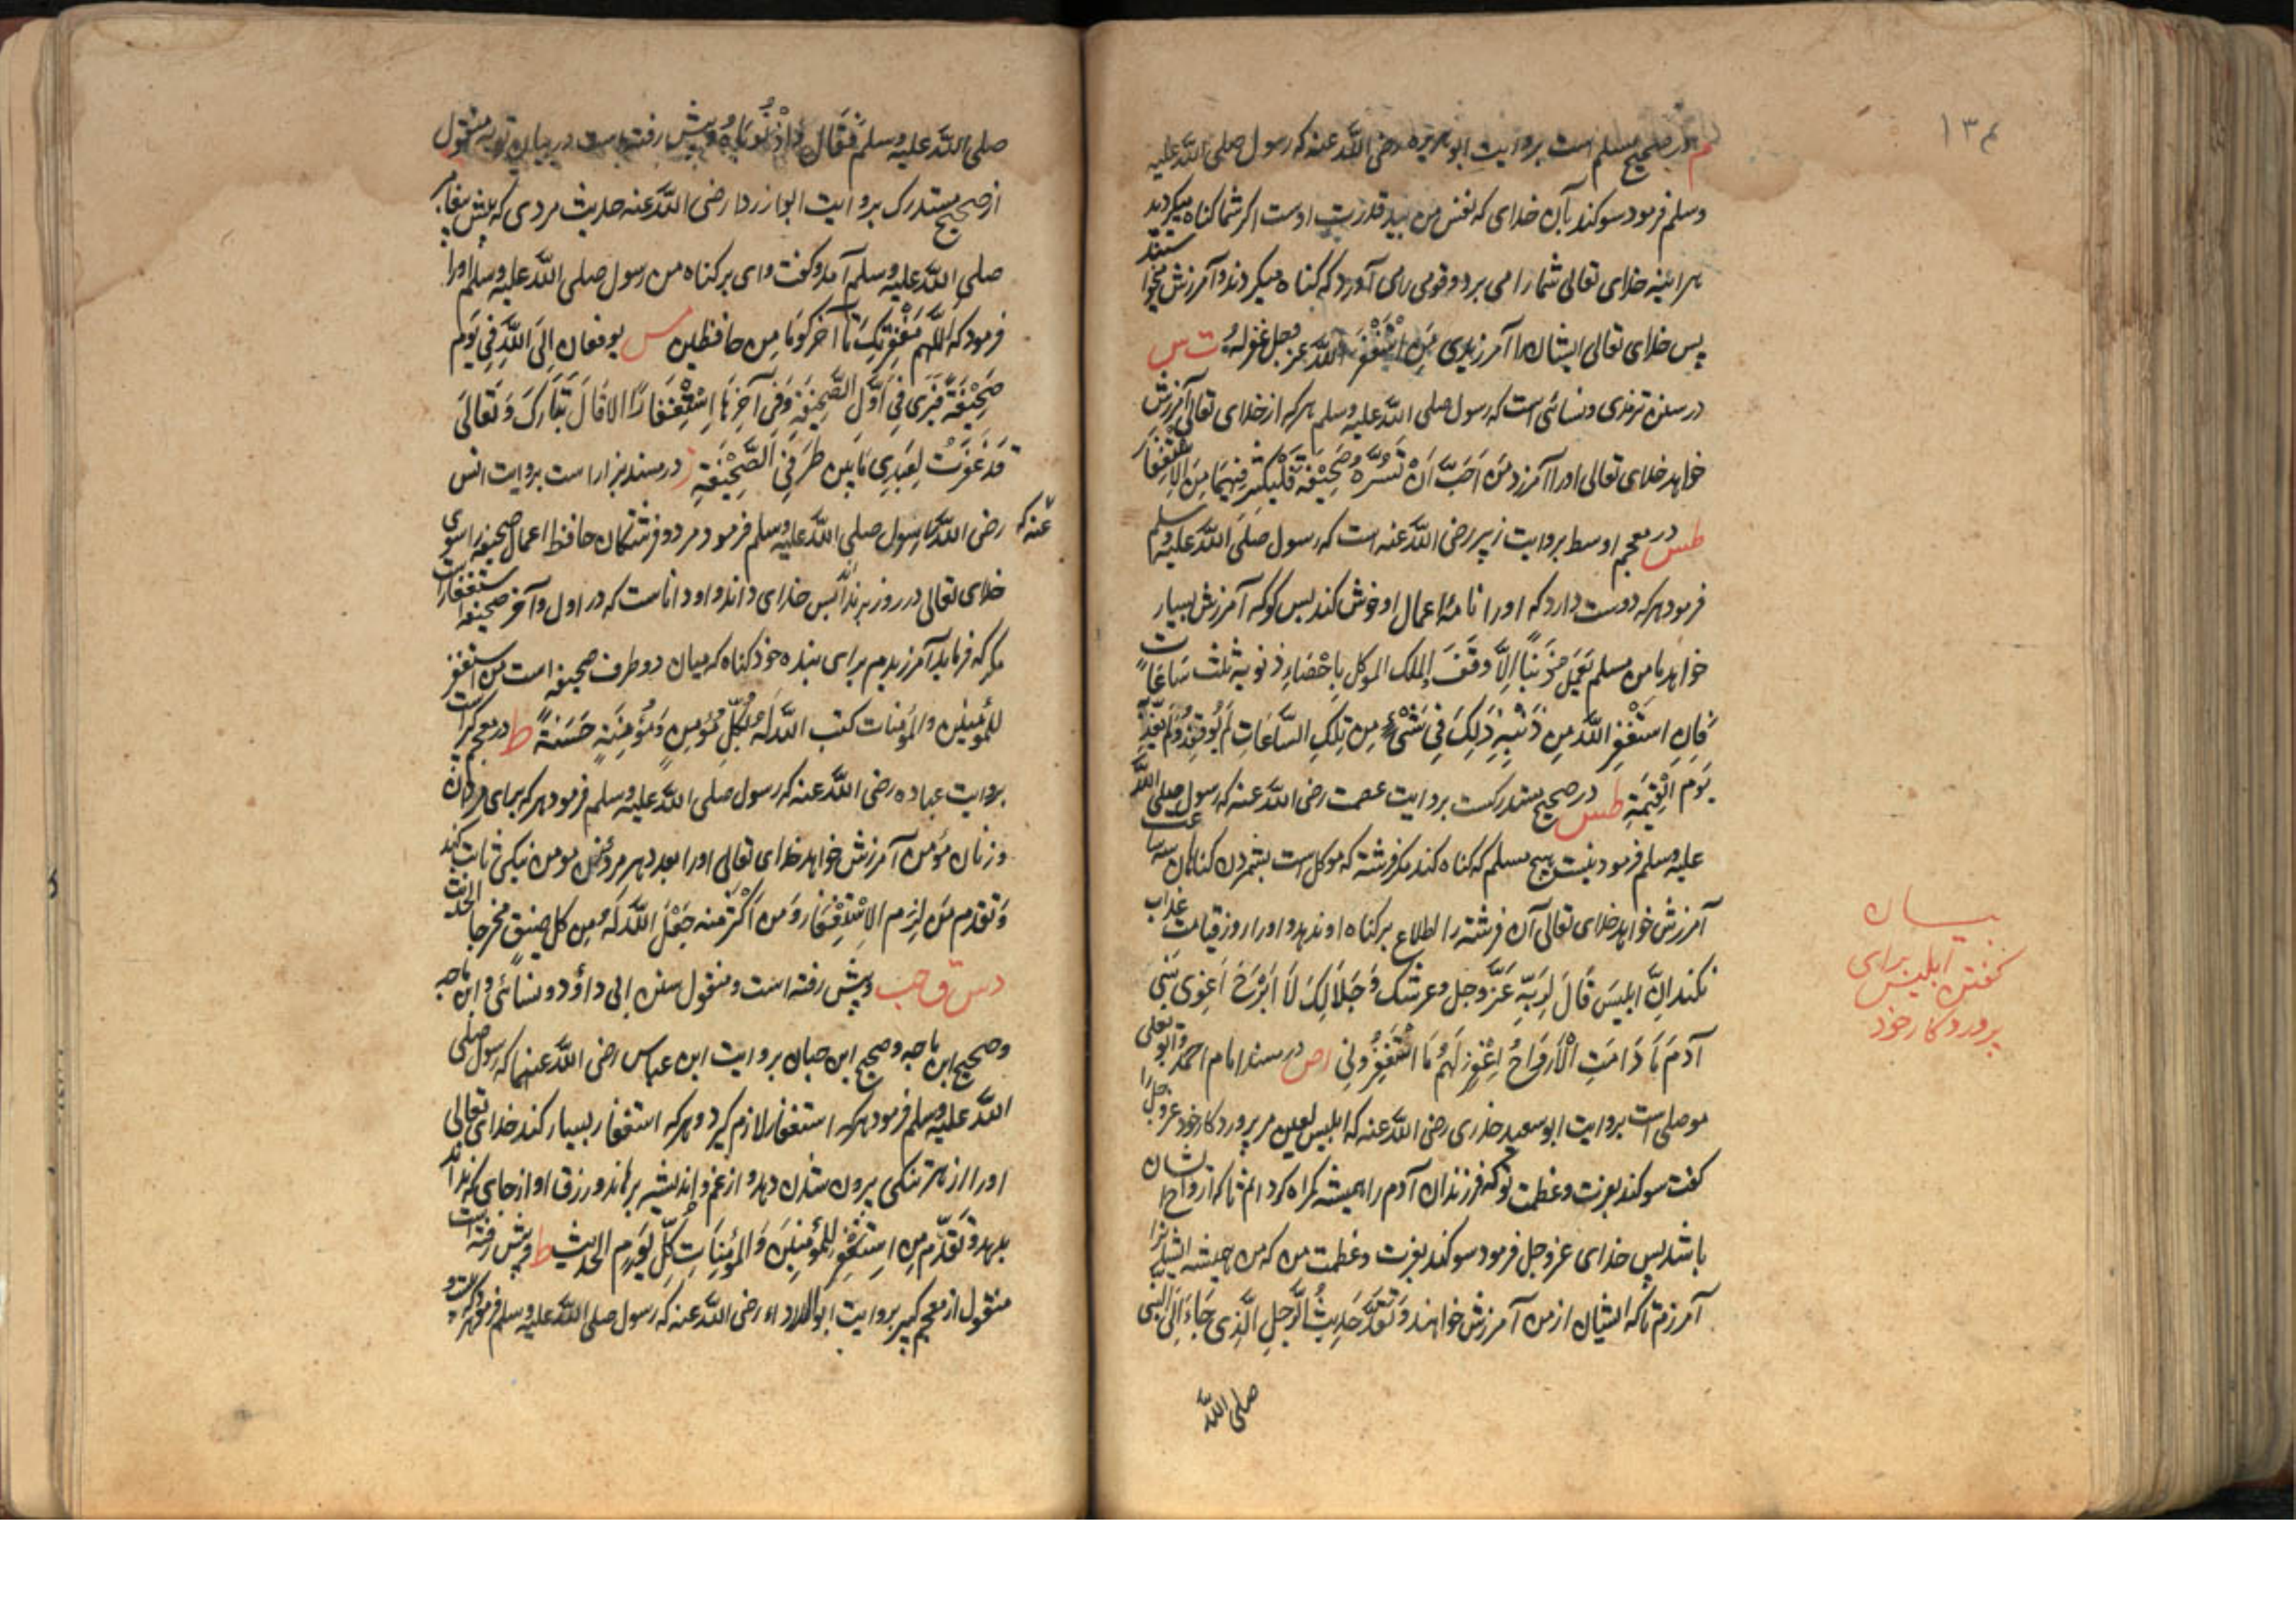 ۱۳۴
م در صحیح مسلم است بروایت ابو هریره رضی الله عنه که رسول صلی الله علیه
وسلم فرمود سوکند بآن خدای که نفس من بید قدرت اوست اکر شما کناه میکردید
هر آئینه خدای تعالی شما را می برد و قومی را می آورد که کناه میکردند و آمرزش میخواستند
پس خدای تعالی ایشان را آمرزیدی مَنِ اسْتَغْفَرَ اللَّهَ عز وجل غفر لهُ ت س
در سنن ترمذی و نسائی است که رسول صلی الله علیه وسلم هر که از خدای تعالی آمرزش
خواهد خدای تعالی او را آمرزد مَن اَحَبَّ اَنْ تَسُرَّهُ صَحِیْفَتُهُ فَلْیُکْثِرْ فِیْهَا مِنَ الْاِسْتِغْفَارِ
طس در معجم اوسط بروایت زبیر رضی الله عنه است که رسول صلی الله علیه وسلم
فرمود هر که دوست دارد که او را نامهٔ اعمال او خوش کند پس کو که آمرزش بسیار
خواهد ما من مسلم یَعْمَلُ ذَنْبًا اِلَّا وَقَفَ الملک الموکل بِاِحْصَاءِ ذنوبه ثلث سَاعَاتٍ
فَاِنِ اسْتَغْفَرَ اللَّهَ مِن ذَنْبِهِ ذَلِکَ فِی شَیْءٍ مِن تِلْکَ السَّاعَاتِ لَم یُوقِفْهُ وَلَم یُعَذَّبْ
یَوْمَ الْقِیٰمَةِ طس در صحیح مستدرکست بروایت عصمت رضی الله عنه که رسول صلی الله
علیه وسلم فرمود نیست هیچ مسلم که کناه کند مکر فرشته که موکل است بشمردن کناهان سه ساعت
آمرزش خواهد خدای تعالی آن فرشته را اطلاع بر کناه او ندهد و او را روز قیامت عذاب
نکند اِنَّ ابلیسَ قَالَ لِرَبِّهِ عَزَّ وجل وعزتک وَجَلَالِکَ لَا اَبْرَحُ اُغْوِی بَنِی
آدَمَ مَا دَامَتِ الْاَرْوَاحُ اغْفِرُ لَهُمْ مَا اسْتَغْفَرُونِی اص در مسند امام احمد و ابو یعلی
موصلی است بروایت ابو سعید خدری رضی الله عنه که ابلیس لعین مر پروردکار خود عز وجل را
کفت سوکند بعزت وعظمت تو که فرزندان آدم را همیشه کمراه کردانم تا که ارواح ایشان
باشد پس خدای عز وجل فرمود سوکند بعزت وعظمت من که من همیشه ایشان را
آمرزم تا که ایشان از من آمرزش خواهند وَتَقَدَّمَ حَدِیثُ الرَّجُلِ الَّذِی جَاءَ اِلَی النَّبِی
صلی الله
بیان
کفتن ابلیس برای
پروردکار خود
صلی الله علیه وسلم فَقَالَ وَاذُنُوبَاهُ و پیش رفته است در بیان توبه منقول
از صحیح مستدرک بروایت رضی الله عنه حدیث مردی که پیش پیغامبر
صلی الله علیه وسلم آمد و کفت وای بر کناه من رسول صلی الله علیه وسلم او را
فرمود که اَللّهُمَّ مَغْفِرَتُکَ تا آخر کو مَا مِن حافظین س یرفعان اِلَی اللَّهِ فِی یَوْمٍ
صَحِیْفَةً فَیَرَی فِی اَوَّلِ الصَّحِیفَةِ وَفِی آخِرِهَا اِسْتِغْفَارًا الا قَالَ تَبَارَکَ وَتَعَالَی
قَدْ غَفَرْتُ لِعَبْدِی مَا بَیْنَ طَرَفَیِ الصَّحِیْفَةِ ز در مسند بزار است بروایت انس
رضی الله عنه که رسول صلی الله علیه وسلم فرمود مر دو فرشتکان حافظ اعمال صحیفه را سوی
خدای تعالی در روز برند پس خدای داند و او داناست که در اول و آخر صحیفه استغفار است
مکر که فرماید آمرزیدم برای بنده خود کناه که میان دو طرف صحیفه است من استغفر
للمؤمنین والمؤمنات کتب الله لَهُ بِکُلِّ مُؤمِنٍ وَمُؤمِنَةٍ حَسَنَةً ط در معجم کبیر است
بروایت عباده رضی الله عنه که رسول صلی الله علیه وسلم فرمود هر که برای مردان
و زنان مؤمن آمرزش خواهد خدای تعالی او را بعدد هر مرد و زن مومن نیکی ثابت کند
وَتَقَدَّمَ مَن لَزِمَ الْاِسْتِغْفَارَ وَمَن اَکْثَرَ مِنْهُ جَعَلَ اللَّهُ لَهُ مِن کل ضِیقٍ مخرجا الحدیث
د س ق حب و پیش رفته است و منقول سنن ابی داؤد و نسائی و ابن ماجه
و صحیح ابن ماجه و صحیح ابن حبان بروایت ابن عباس رضی الله عنهما که رسول صلی
الله علیه وسلم فرمود هر که استغفار لازم کیرد و هر که استغفار بسیار کند خدای تعالی
او را از هر تنکی برون شدن دهد و از غم و اندیشه برهاند و رزق او از جای که نداند
بدهد و تَقَدَّمَ مَن اسْتَغْفَرَ لِلْمُؤمِنِیْنَ وَالْمُؤمِنَاتِ کُلَّ یَوْمٍ الحدیث ط و پیش رفته است
منقول از معجم کبیر بروایت ابو الدرداء رضی الله عنه که رسول صلی الله علیه وسلم فرمود